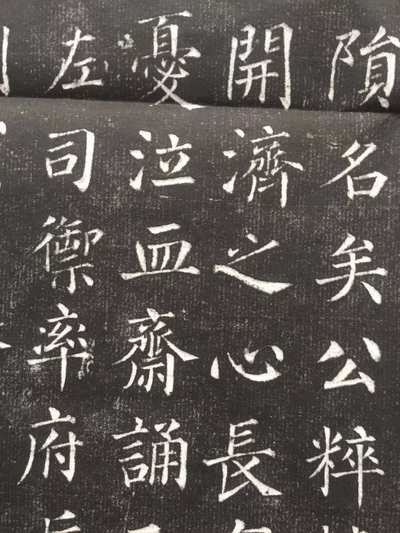 隕名矣公粹
開濟之心長
憂泣血齋誦
左司禦率府